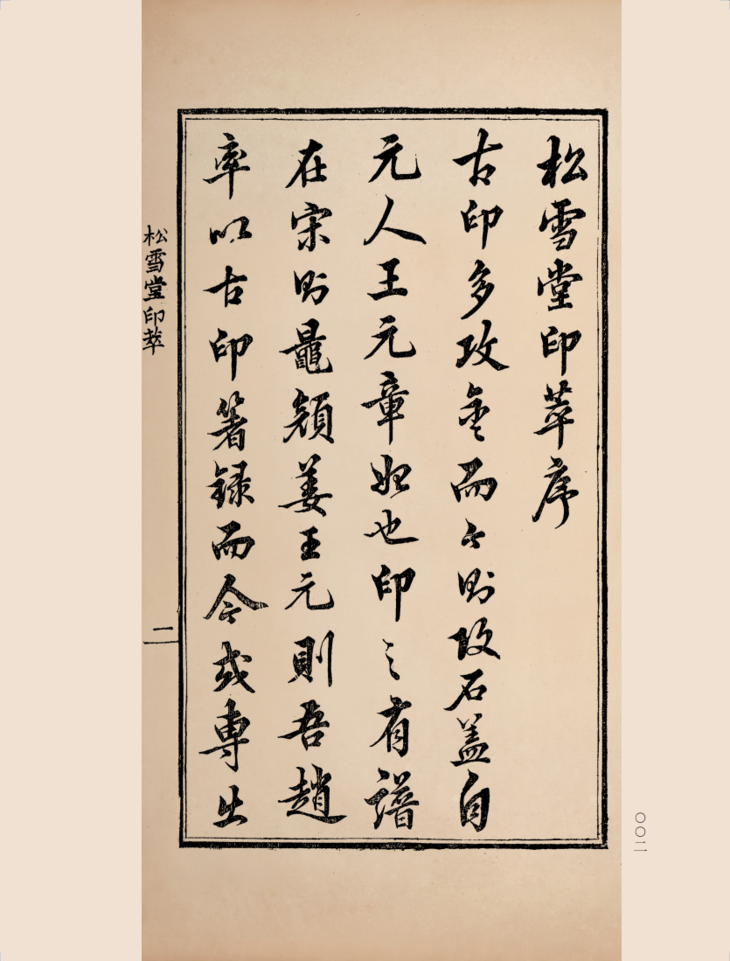 松雪堂印萃序
古印多攻金而今則攻石蓋自
元人王元章始也印之有譜
在宋則鼂顏姜王元則吾趙
率以古印箸録而今或專出
松雪堂印萃
二
〇〇二